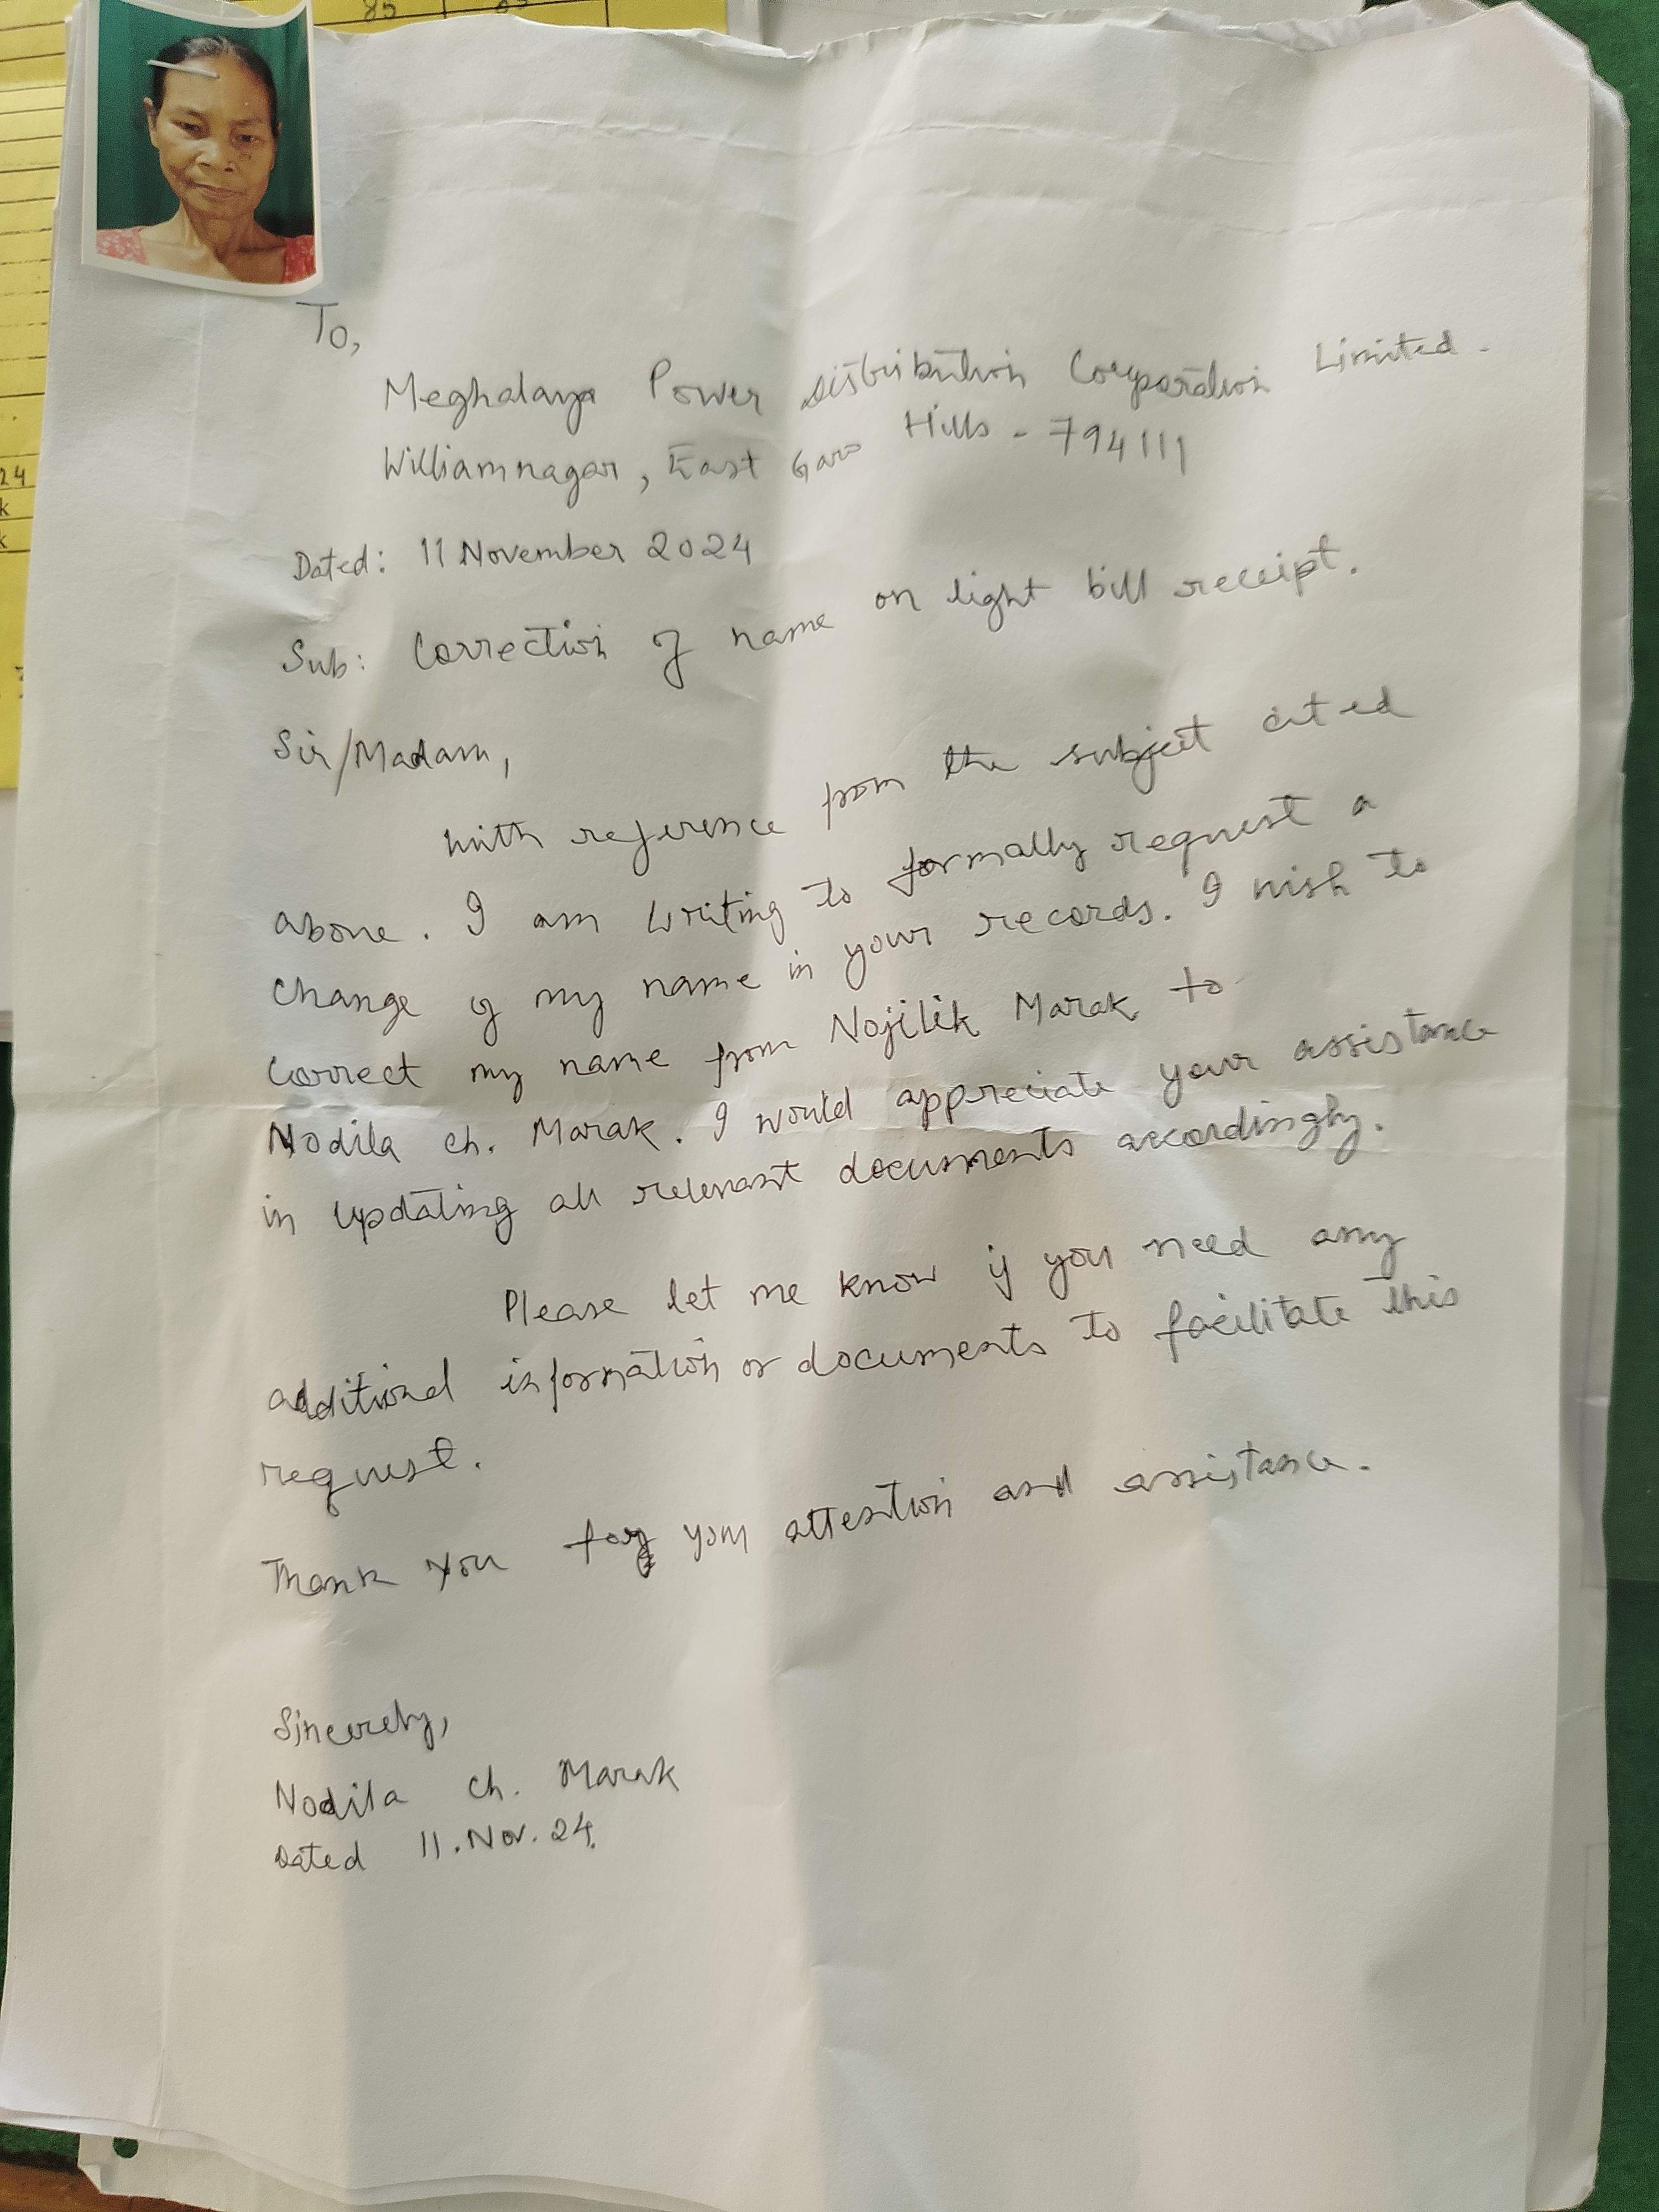 85
24
k
k
To,
Meghalaya Power Distribution Corporation Limited.
Williamnagar, East Garo Hills - 794111
Dated: 11 November 2024
Sub: Correction of name on light bill receipt.
Sir/Madam,
With reference from the subject cited
above. I am writing to formally request a
change of my name in your records. I wish to
correct my name from Nojilik Marak to
Nodila ch. Marak. I would appreciate your assistance
in updating all relevant documents accordingly.
Please let me know if you need any
additional information or documents to facilitate this
request.
Thank you for your attention and assistance.
Sincerely,
Nodila Ch. Marak
Dated 11.Nov.24.